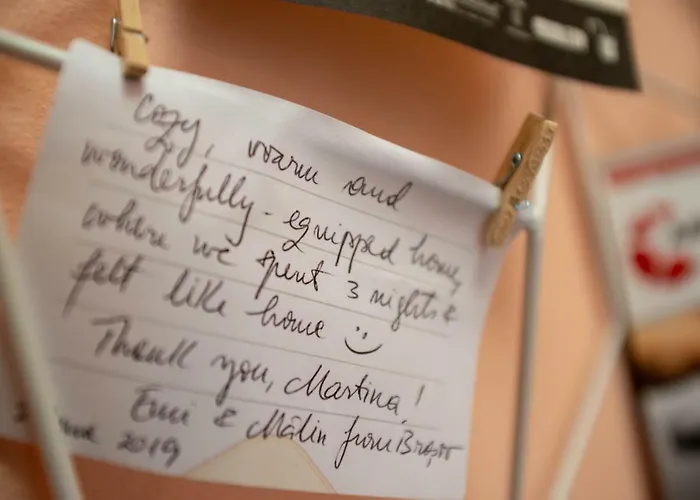 Cozy, warm and
wonderfully-equipped home,
where we spent 3 nights &
felt like home :)
Thank you, Martina!
Emi & Mălin from Brașov
2019